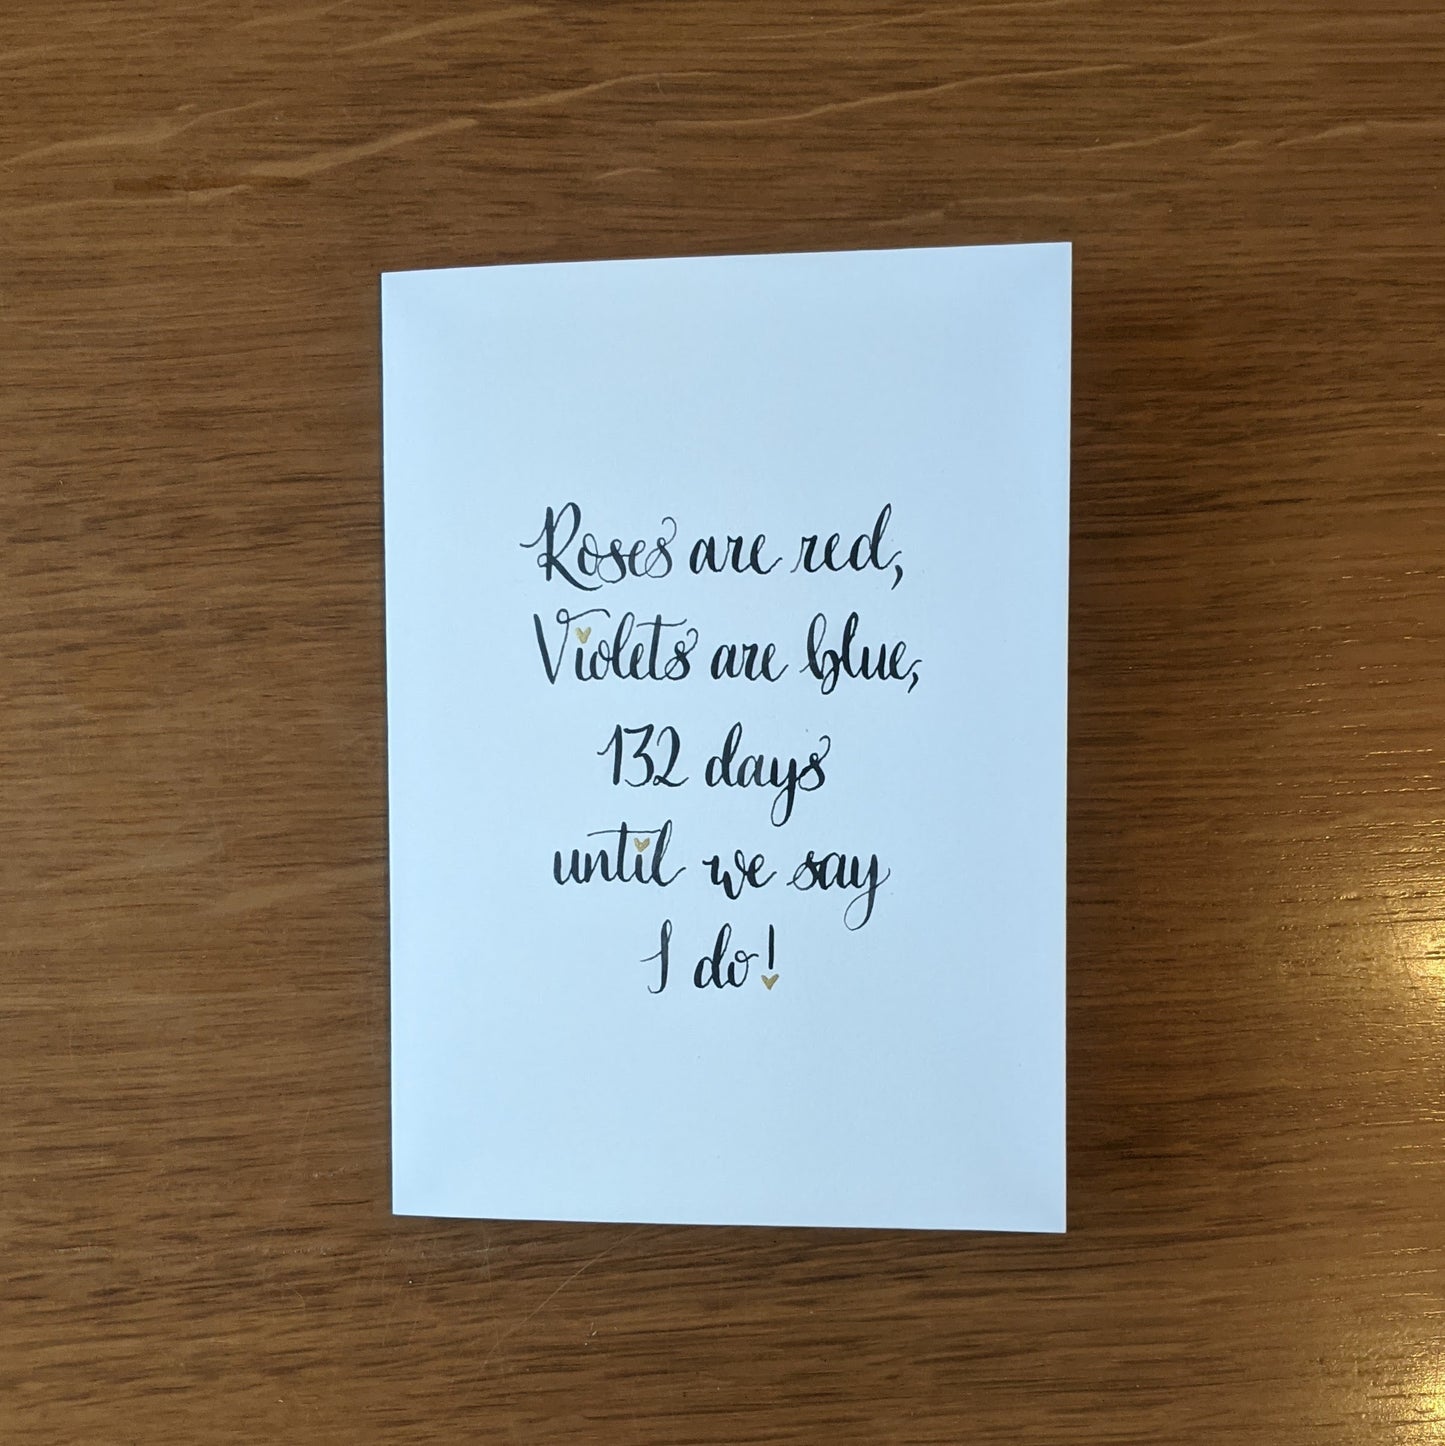 Roses are red,
Violets are blue,
132 days
until we say
I do!